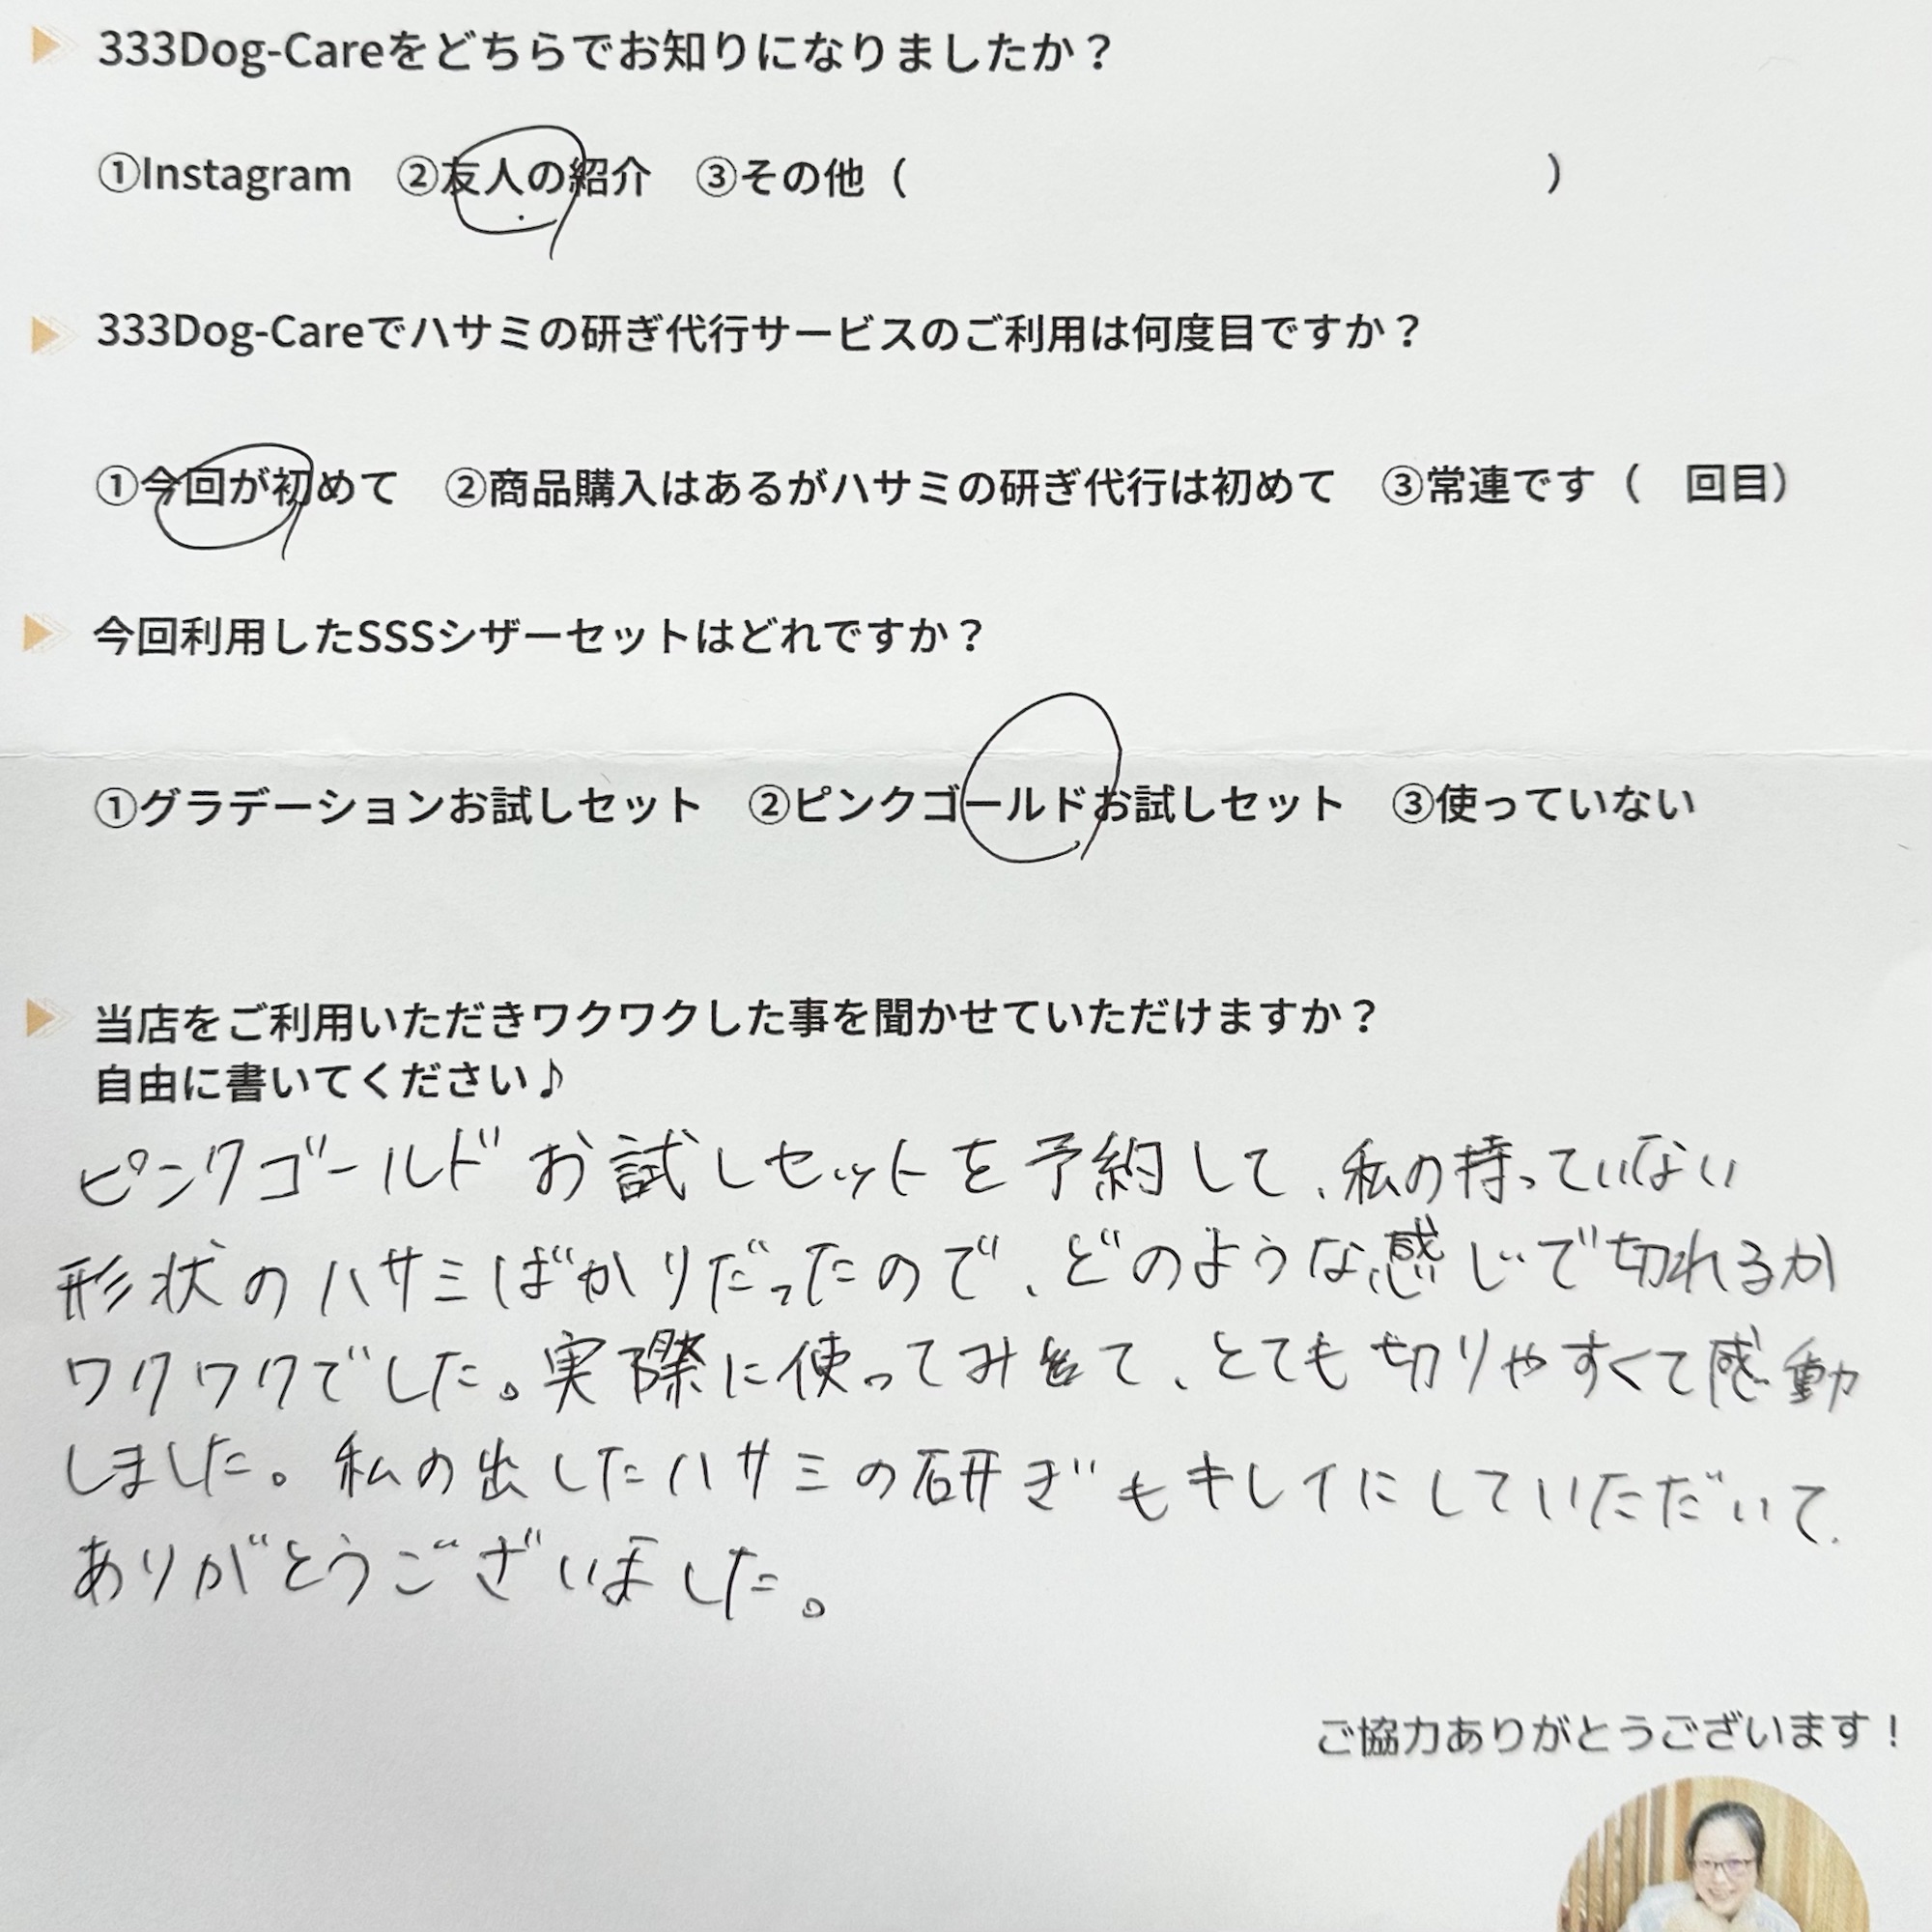 333Dog-Careをどちらでお知りになりましたか？
①Instagram　②友人の紹介　③その他（　　　　　　　　　　　　　　　）
333Dog-Careでハサミの研ぎ代行サービスのご利用は何度目ですか？
①今回が初めて　②商品購入はあるがハサミの研ぎ代行は初めて　③常連です（　回目）
今回利用したSSSシザーセットはどれですか？
①グラデーションお試しセット　②ピンクゴールドお試しセット　③使っていない
当店をご利用いただきワクワクした事を聞かせていただけますか？
自由に書いてください♪
ピンクゴールドお試しセットを予約して、私の持っていない
形状のハサミばかりだったので、どのような感じで切れるか
ワクワクでした。実際に使ってみて、とても切りやすくて感動
しました。私の出したハサミの研ぎもキレイにしていただいて、
ありがとうございました。
ご協力ありがとうございます！